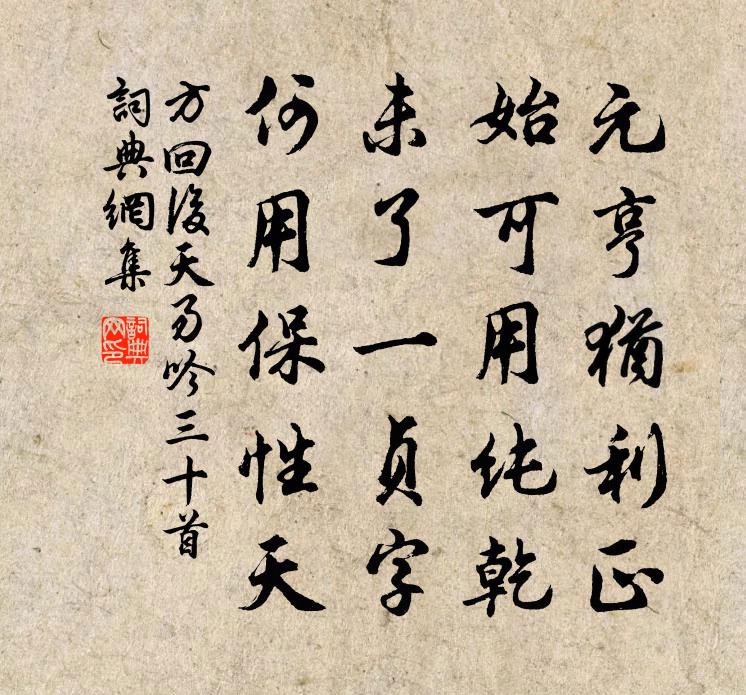 元亨猶利正
始可用純乾
未了一貞字
何用保性天
方回後天易吟三十首
詞典網集
詞典網印